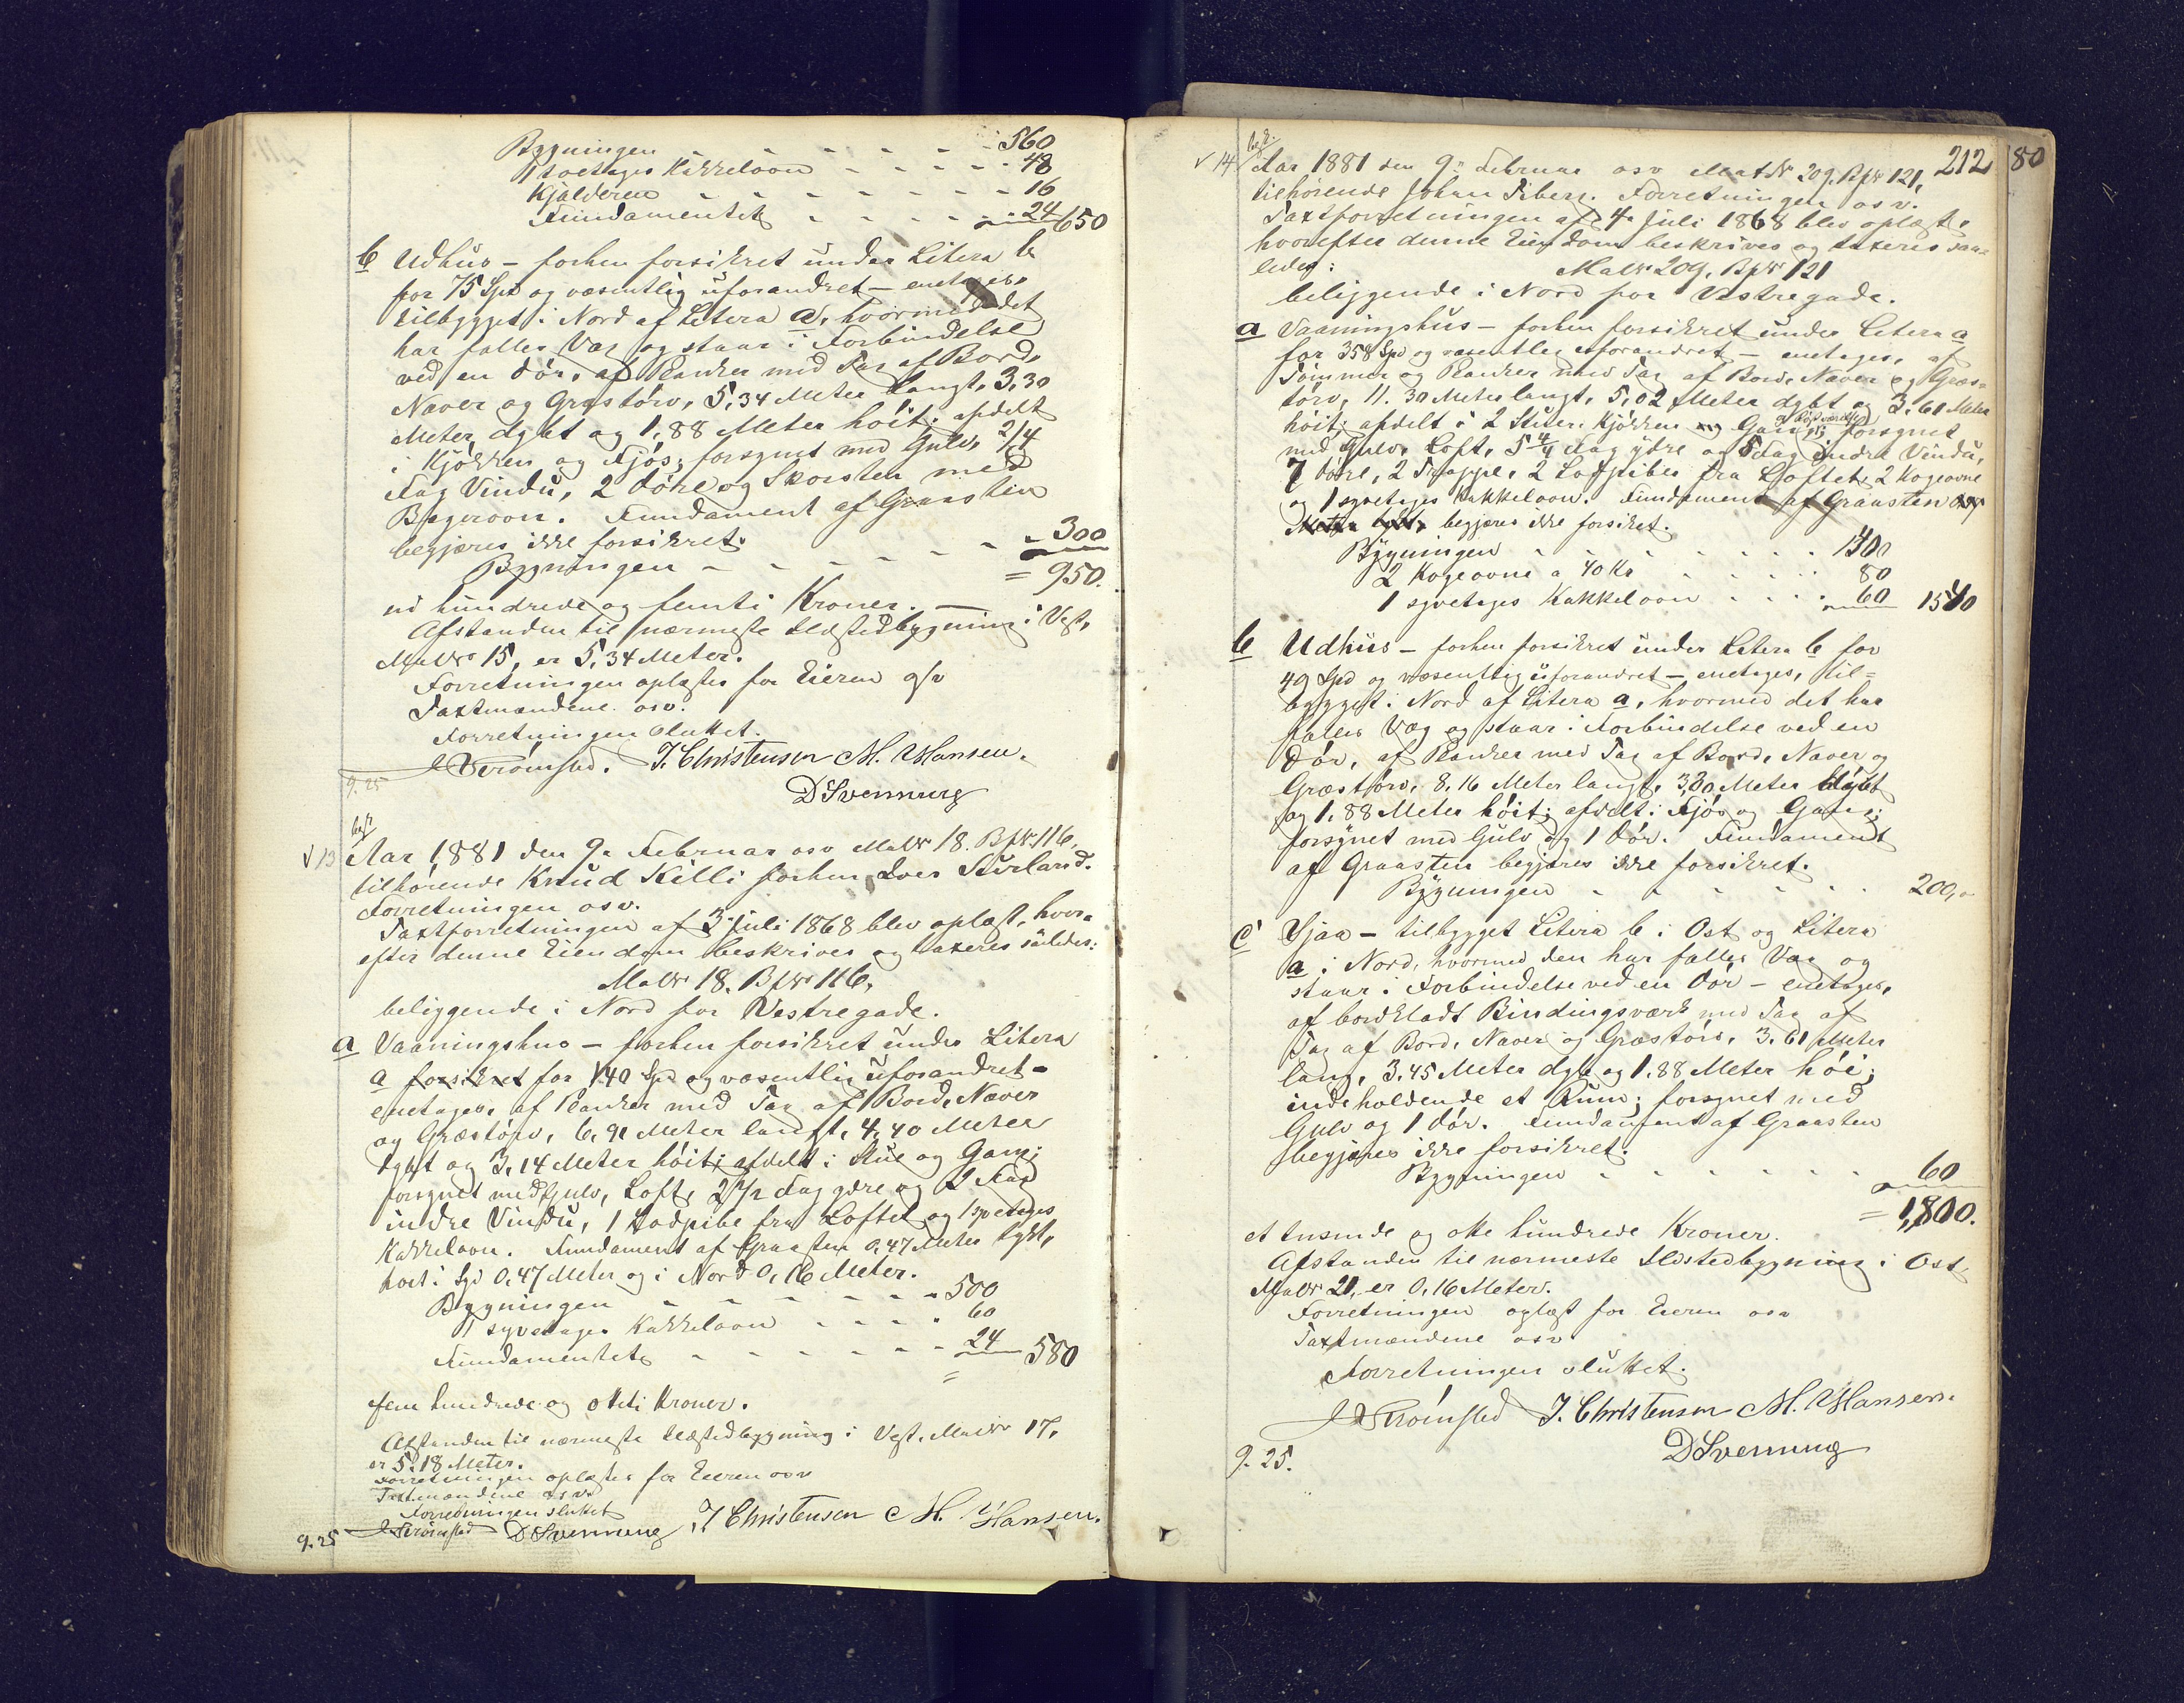 Bygningen - - - - - - 560
1 toetages Kakkelovn - - - - - 48
Kjælderen - - - - - - - 16
Fundamentet - - - - - - 24 650
b Udhus - forhen forsikret under Litera b
for 75 Spd og væsentlig uforandret - enetages,
tilbygget i Nord af Litera a, hvormed det
har fælles Væg og staar i Forbindelse
ved en Dør, af Planker med Tag af Bord,
Næver og Græstørv, 5,34 Meter langt, 3,30
Meter dybt og 1,88 Meter höit; afdelt
i Kjökken og Fjös; forsynet med Gulv, 2/4
Fag Vindu, 2 Döre og Skorsten med
Bagerovn. Fundament af Graasten
begjæres ikke forsikret.
Bygningen - - - - - 300
= 950.
ni hundrede og femti Kroner. —
Afstanden til nærmeste Ildstedbygning i Vest,
MatNr 15, er 5,34 Meter.
Forretningen oplæstes for Eieren osv
Taxtmændene osv.
Forretningen sluttet.
J. Christensen M. Hansen.
9.25
DSvenning
V 13 Aar 1881 den 9. Februar osv MatNr 18. BfNr 116,
tilhørende Knud Killi forhen
Forretningen osv.
Taxtforretningen af 3 Juli 1868 blev oplæst, hvor=
efter denne Eiendom beskrives og taxeres således:
MatNr 18. BfNr 116.
beliggende i Nord for Vestregade.
a Vaaningshus - forhen forsikret under Litera
a forsikret for 140 Spd og væsentlig uforandret -
enetages, af Planker med Tag af Bord, Næver
og Græstörv, 6,91 Meter langt, 4,40 Meter
dybt og 3,14 Meter höit; afdelt i Stue og Gang;
forsynet med Gulv, Loft, 2 1/2 Fag ydre og 2 Fag
indre Vindu, 1 Lodpibe fra Loftet og 1 syvetages
Kakkelovn. Fundament af Graasten 0,47 Meter tykt,
höit i Syd 0,47 Meter og i Nord 0,16 Meter.
Bygningen - - - - - - 500
1 syvetages Kakkelovn - - - - 60
Fundamentet - - - - - - 24 580
=
fem hundrede og otteti Kroner.
Afstanden til nærmeste Ildstedbygning i Vest, MatNr 17,
er 5,18 Meter.
Forretningen oplæstes for Eieren osv
Taxtmændene osv.
Forretningen sluttet
9.25 DSvenning J. Christensen M. Hansen.
212 80
V 14 Aar 1881 den 9. Februar osv MatNr 209. BfNr 121,
tilhørende Johan Fiberg. Forretningen osv.
Taxtforretningen af 4 Juli 1868 blev oplæst,
hvorefter denne Eiendom beskrives og taxeres saa=
ledes:
MatNr 209. BfNr 121
beliggende i Nord for Vestregade.
a Vaaningshus - forhen forsikret under Litera a
for 358 Spd og væsentlig uforandret - enetages, af
Tömmer og Planker med Tag af Bord, Næver og Græs=
törv, 11.30 Meter langt, 5,02 Meter dybt og 3,61 Meter
höit; afdelt i 2 Stuer, Kjökken og Gang; forsynet
med Gulv, Loft, 5 4/4 Fag ydre og 5 Fag indre Vindu,
7 Döre, 2 Trapper, 2 Lodpiber fra Loftet, 2 Kogeovne
og 1 syvetages Kakkelovn. Fundament af Graasten
begjæres ikke forsikret.
Bygningen - - - - - - 1400
2 Kogeovne a 40 Kr - - - - 80
1 syvetages Kakkelovn - - - - 60 1540
b Udhus - forhen forsikret under Litera b for
49 Spd og væsentlig uforandret - enetages, til=
bygget i Nord af Litera a, hvormed det har
fælles Væg og staar i Forbindelse ved en
Dör, af Planker med Tag af Bord, Næver og
Græstörv, 8,16 Meter langt, 3,30 Meter dybt
og 1,88 Meter höit; afdelt i Fjös og Gang;
forsynet med Gulv og 1 Dör. Fundament
af Graasten begjæres ikke forsikret.
Bygningen - - - - - - 200,,
c Sjaa - tilbygget Litera b i Ost og Litera
a i Nord, hvormed den har fælles Væg og
staar i Forbindelse ved en Dör - enetages,
af bordklædt Bindingsværk med Tag af
Tag af Bord, Næver og Græstörv, 3,61 Meter
lang, 3,45 Meter dyb og 1.88 Meter höi;
indeholdende et Rum; forsynet med
Gulv og 1 Dör. Fundament af Graasten
begjæres ikke forsikret.
Bygningen - - - - - - 60
= 1,800.
et tusinde og otte hundrede Kroner.
Afstanden til nærmeste Ildstedbygning i Ost,
MatNr 21, er 0,16 Meter.
Forretningen oplæst for Eieren osv
Taxtmændene osv.
Forretningen sluttet.
J. Christensen M. Hansen.
DSvenning
9. 25.